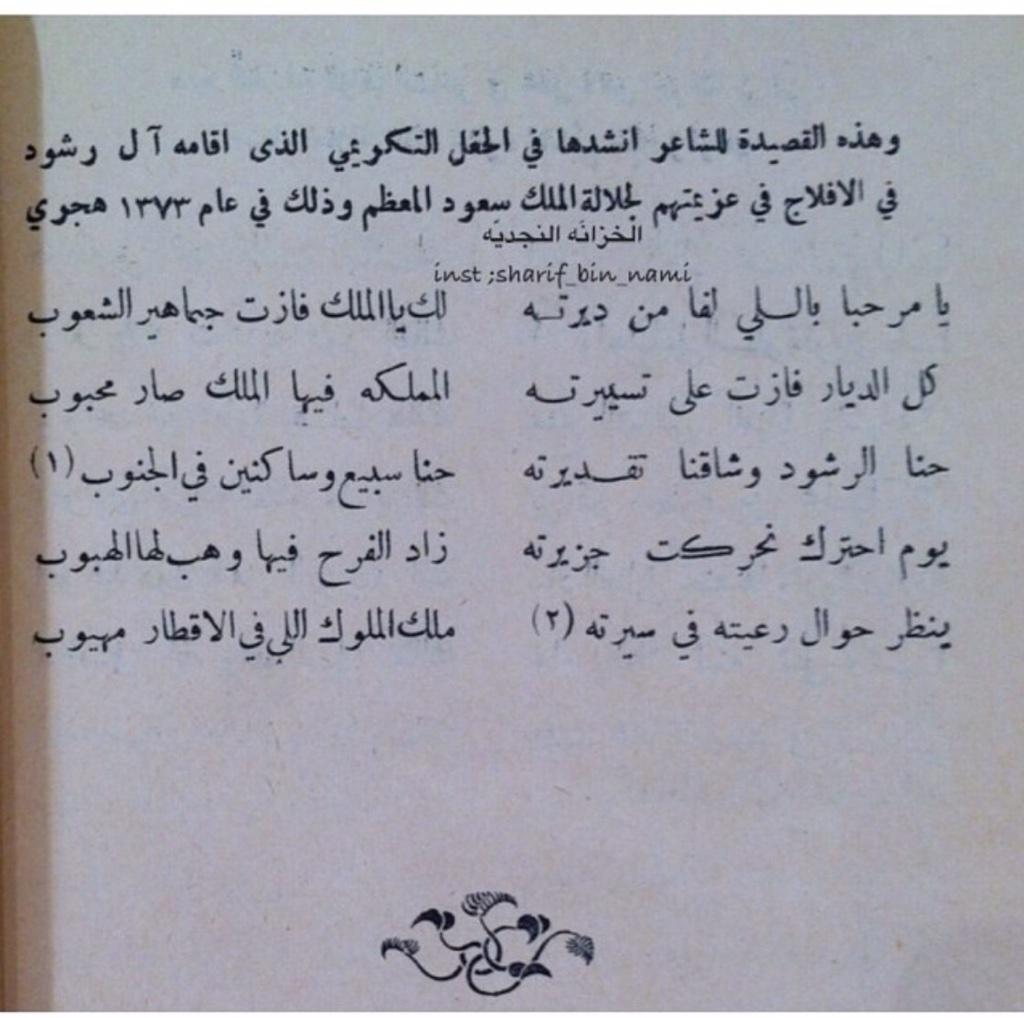 وهذه القصيدة للشاعر انشدها في الحفل التكريمي الذى اقامه آل رشود
في الافلاج في عزيمتهم لجلالة الملك سعود المعظم وذلك في عام ١٣٧٣ هجري
الخزانه النجديه
inst ;sharif_bin_nami
يا مرحبا باللي لفا من ديرته لك يا الملك فازت جماهير الشعوب
كل الديار فازت على تسييرته المملكه فيها الملك صار محبوب
حنا الرشود وشاقنا تقديرته حنا سبيع وساكنين في الجنوب (١)
يوم احترك تحركت جزيرته زاد الفرح فيها وهب لها الهبوب
ينظر حوال رعيته في سيرته (٢) ملك الملوك اللي في الاقطار مهيوب